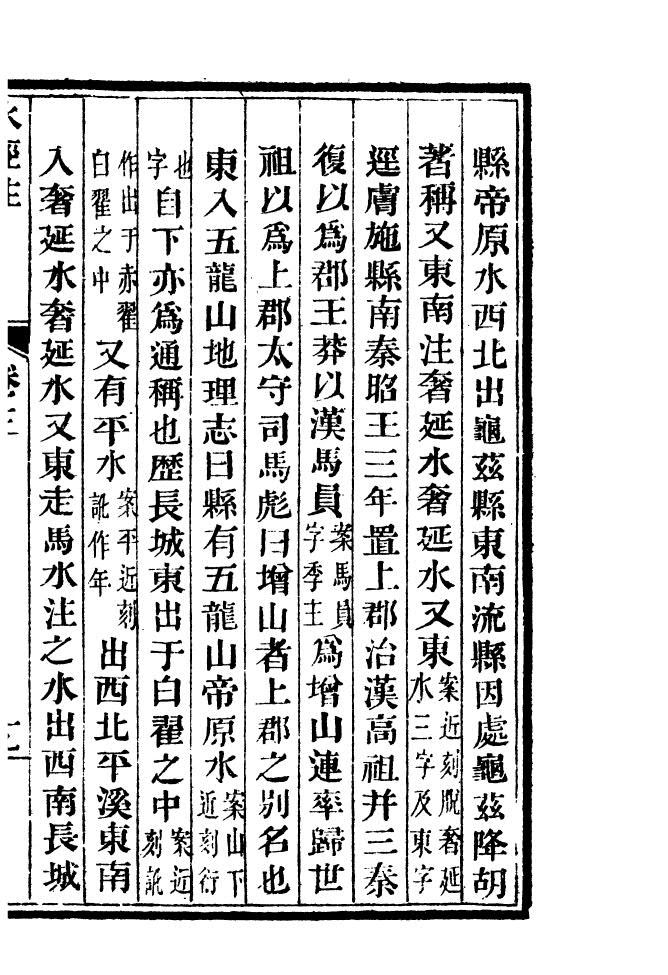 縣帝原水西北出龜茲縣東南流縣因處龜茲降胡
著稱又東南注奢延水奢延水又東案近刻脫奢延水三字及東字
逕膚施縣南秦昭王三年置上郡治漢高祖并三秦
復以爲郡王莽以漢馬員案馬員字季主爲增山連率歸世
祖以爲上郡太守司馬彪曰增山者上郡之別名也
東入五龍山地理志曰縣有五龍山帝原水案山下近刻衍
也字自下亦爲通稱也歷長城東出于白翟之中案近刻訛
作出于赤翟白翟之中又有平水案平近刻訛作年出西北平溪東南
入奢延水奢延水又東走馬水注之水出西南長城
水經注
卷三